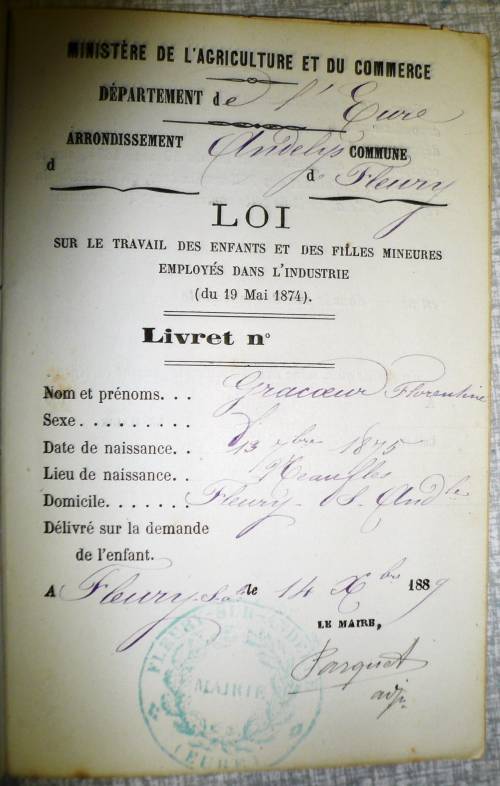 MINISTÈRE DE L'AGRICULTURE ET DU COMMERCE
DÉPARTEMENT de l'Eure
ARRONDISSEMENT d Andelys COMMUNE d Fleury
LOI
SUR LE TRAVAIL DES ENFANTS ET DES FILLES MINEURES
EMPLOYÉS DANS L'INDUSTRIE
(du 19 Mai 1874).
Livret n°
Nom et prénoms. . . Gracœur Florentine
Sexe . . . . . . . . .
Date de naissance. . 13 7bre 1875
Lieu de naissance. . Neaufles
Domicile. . . . . . . Fleury - S - And lle
Délivré sur la demande
de l'enfant.
A Fleury le 14 Xbre 1889
LE MAIRE,
Parquet
adj.
FLEURY-SUR-ANDELLE
MAIRIE
(EURE)